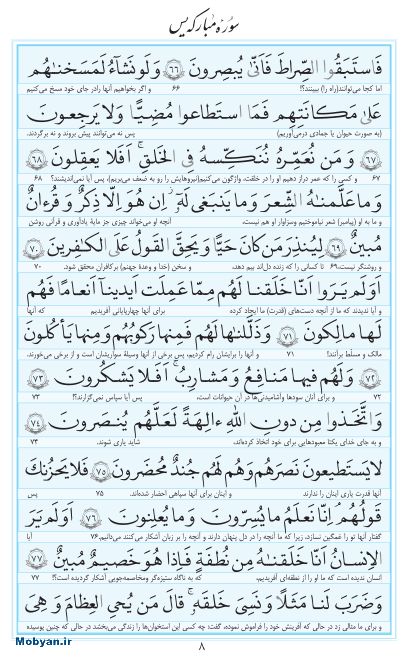 سوره مبارکه یس
فَاستَبَقُوا الصِّراطَ فَاَنّیٰ یُبصِرونَ ﴿٦٦﴾ وَلَو نَشآءُ لَمَسَخنٰهُم
اما کجا می‌توانند(راه را) ببینند؟! ۶۶ و اگر بخواهیم آنها رادر جای خود مسخ می‌کنیم
عَلیٰ مَکانَتِهِم فَمَا استَطاعوا مُضِیًّا وَلا یَرجِعونَ
(به صورت حیوان یا جمادی درمی‌آوریم) پس نه می‌توانند پیش بروند و نه برگردند.
﴿٦٧﴾ وَ مَن نُعَمِّرهُ نُنَکِّسهُ فِی الخَلقِ ۚ اَفَلا یَعقِلونَ ﴿٦٨﴾
۶۷ و کسی را که عمر دراز دهیم او را در خلقت، واژگون می‌کنیم(نیروهایش را رو به ضعف می‌بریم)، پس آیا نمی‌اندیشند؟ ۶۸
وَما عَلَّمنٰهُ الشِّعرَ وَما یَنبَغی لَهُ ۚ اِن هُوَ اِلّا ذِکرٌ وَ قُرءانٌ
و ما به او (پیامبر) شعر نیاموختیم وسزاوار او هم نیست. آنچه او می‌خواند چیزی جز مایهٔ یادآوری و قرآنی روشن
مُبینٌ ﴿٦٩﴾ لِیُنذِرَ مَن کانَ حَیًّا وَ یَحِقَّ القَولُ عَلَی الکٰفِرینَ ﴿٧٠﴾
و روشنگر نیست.۶۹ تا کسانی را که زنده دل‌اند بیم دهد، و سخن (خدا و وعدهٔ جهنم) برکافران محقق شود. ۷۰
اَوَلَم یَرَوا اَنّا خَلَقنا لَهُم مِمّا عَمِلَت اَیدینا اَنعامًا فَهُم
و آیا ندیدند که ما از آنچه دست‌های (قدرت) ما ایجاد کرده برای آنها چهارپایانی آفریدیم که آنها
لَها مالِکونَ ﴿٧١﴾ وَذَلَّلنٰها لَهُم فَمِنها رَکوبُهُم وَمِنها یَأکُلونَ
مالک و مسلط برآنند! ۷۱ و آنها را برایشان رام کردیم، پس برخی از آنها وسیلهٔ سواریشان است و از برخی می‌خورند.
﴿٧٢﴾ وَ لَهُم فیها مَنافِعُ وَ مَشارِبُ ۚ اَفَلا یَشکُرونَ ﴿٧٣﴾
۷۲ و برای آنان سودها وآشامیدنی‌ها در آن حیوانات است، پس آیا سپاس نمی‌گزارند؟! ۷۳
وَ اتَّخَذوا مِن دونِ اللهِ ءالِهَةً لَعَلَّهُم یُنصَرونَ ﴿٧٤﴾
و به جای خدای یکتا معبودهایی برای خود اتخاذ کرده‌اند، شاید یاری شوند. ۷۴
لا یَستَطیعونَ نَصرَهُم وَ هُم لَهُم جُندٌ مُحضَرونَ ﴿٧٥﴾ فَلا یَحزُنکَ
آنها قدرت یاری اینان را ندارند و اینان برای آنها سپاهی احضار شده‌اند. ۷۵ پس
قَولُهُم ۘ اِنّا نَعلَمُ ما یُسِرّونَ وَ ما یُعلِنونَ ﴿٧٦﴾ اَوَلَم یَرَ
گفتار آنها تو را غمگین نسازد، زیرا که ما آنچه را در دل پنهان دارند و آنچه را به زبان آشکار می‌کنند می‌دانیم.۷۶ آیا
الاِنسانُ اَنّا خَلَقنٰهُ مِن نُطفَةٍ فَاِذا هُوَ خَصیمٌ مُبینٌ ﴿٧٧﴾
انسان ندیده است که ما او را از نطفه‌ای آفریدیم، که به ناگاه ستیزه‌گر ومخاصمه‌جویی آشکار گردیده است؟! ۷۷
وَ ضَرَبَ لَنا مَثَلًا وَ نَسِیَ خَلقَهُ ۖ قالَ مَن یُحیِ العِظامَ وَ هِیَ
و برای ما مثالی زد در حالی که آفرینش خود را فراموش نموده، گفت: چه کسی این استخوان‌ها را زندگی می‌بخشد در حالی که چنین پوسیده
۸
Mobyan.ir